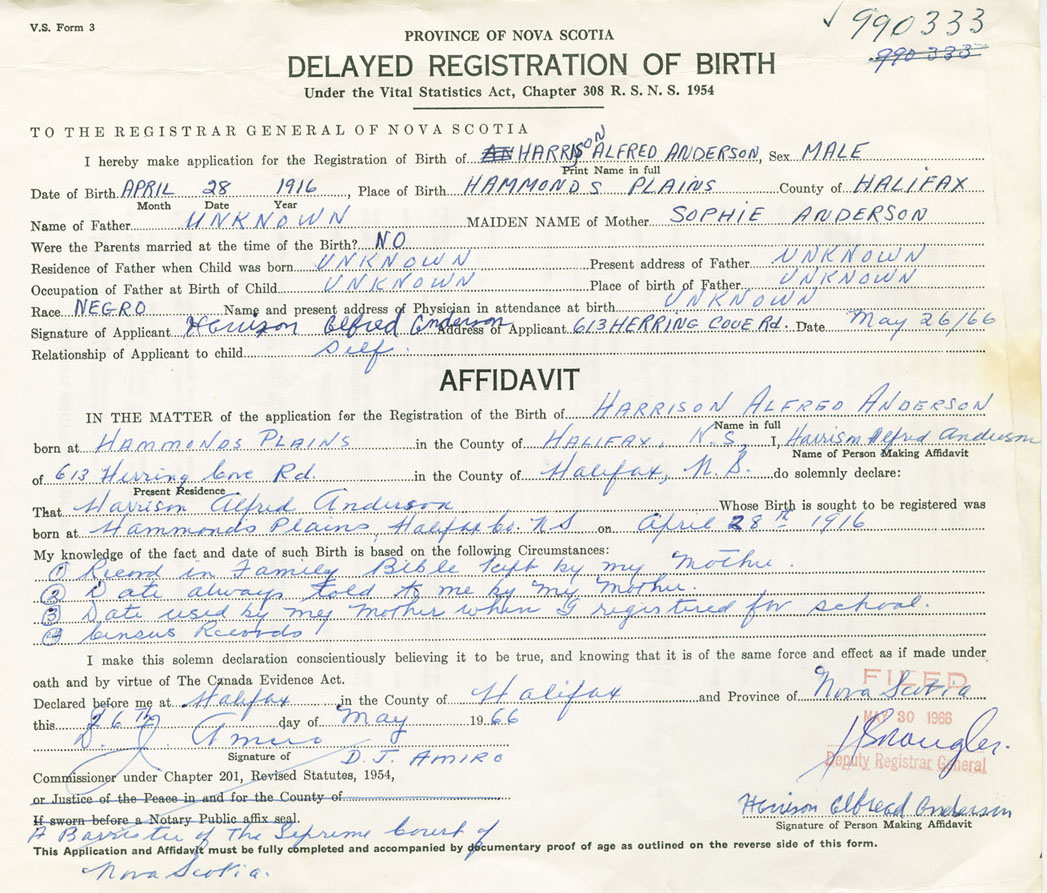 V.S. Form 3
✓ 990333
990333
PROVINCE OF NOVA SCOTIA
DELAYED REGISTRATION OF BIRTH
Under the Vital Statistics Act, Chapter 308 R. S. N. S. 1954
TO THE REGISTRAR GENERAL OF NOVA SCOTIA
I hereby make application for the Registration of Birth of AN HARRISON ALFRED ANDERSON, Sex MALE
Print Name in full
Date of Birth APRIL 28 1916, Place of Birth HAMMONDS PLAINS County of HALIFAX
Month Date Year
Name of Father UNKNOWN MAIDEN NAME of Mother SOPHIE ANDERSON
Were the Parents married at the time of the Birth? NO
Residence of Father when Child was born UNKNOWN Present address of Father UNKNOWN
Occupation of Father at Birth of Child UNKNOWN Place of birth of Father UNKNOWN
Race NEGRO Name and present address of Physician in attendance at birth UNKNOWN
Signature of Applicant Harrison Alfred Anderson Address of Applicant 613 HERRING COVE Rd. Date May 26/66
Relationship of Applicant to child Self.
AFFIDAVIT
IN THE MATTER of the application for the Registration of the Birth of HARRISON ALFRED ANDERSON
Name in full
born at HAMMONDS PLAINS in the County of HALIFAX, N.S., I, Harrison Alfred Anderson
Name of Person Making Affidavit
of 613 Herring Cove Rd. in the County of Halifax, N.S. do solemnly declare:
Present Residence
That Harrison Alfred Anderson Whose Birth is sought to be registered was
born at Hammonds Plains, Halifax Co. NS on April 28th 1916
My knowledge of the fact and date of such Birth is based on the following Circumstances:
① Record in Family Bible kept by my Mother.
② Date always told to me by my Mother.
③ Date used by my Mother when I registered for school.
④ Census Records
I make this solemn declaration conscientiously believing it to be true, and knowing that it is of the same force and effect as if made under
oath and by virtue of The Canada Evidence Act.
FILED
Declared before me at Halifax in the County of Halifax and Province of Nova Scotia
this 26th day of May 1966
MAY 30 1966
D. J. Amiro
Signature of D. J. AMIRO
Deputy Registrar General
Commissioner under Chapter 201, Revised Statutes, 1954,
or Justice of the Peace in and for the County of
Harrison Alfread Anderson
If sworn before a Notary Public affix seal.
Signature of Person Making Affidavit
A Barrister of the Supreme Court of
This Application and Affidavit must be fully completed and accompanied by documentary proof of age as outlined on the reverse side of this form.
Nova Scotia.